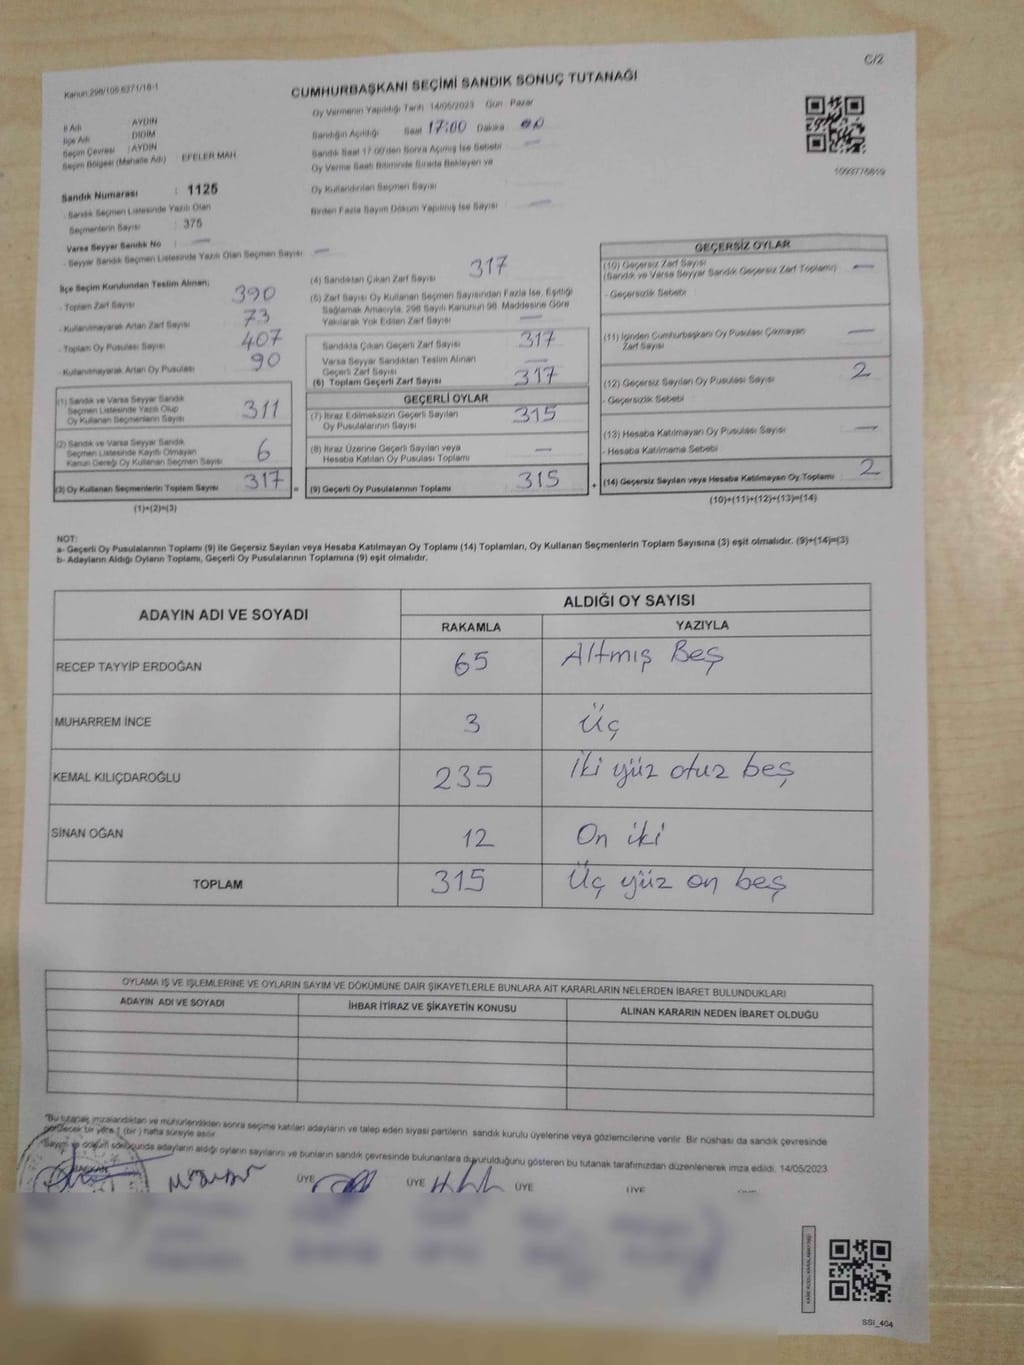 C/2
Kanun 298/105 6271/18-1
CUMHURBAŞKANI SEÇİMİ SANDIK SONUÇ TUTANAĞI
Oy Vermenin Yapıldığı Tarih 14/05/2023 Gün : Pazar
İl Adı : AYDIN
İlçe Adı : DİDİM
Seçim Çevresi : AYDIN
Seçim Bölgesi (Mahalle Adı) : EFELER MAH.
Sandığın Açıldığı Saat 17:00 Dakika 00
Sandık Saat 17:00'den Sonra Açılmış İse Sebebi —
Oy Verme Saati Bitiminde Sırada Bekleyen ve
Oy Kullandırılan Seçmen Sayısı
Birden Fazla Sayım Döküm Yapılmış İse Sayısı —
Sandık Numarası : 1125
- Sandık Seçmen Listesinde Yazılı Olan
Seçmenlerin Sayısı : 375
Varsa Seyyar Sandık No : —
- Seyyar Sandık Seçmen Listesinde Yazılı Olan Seçmen Sayısı : —
İlçe Seçim Kurulundan Teslim Alınan;
- Toplam Zarf Sayısı 390
- Kullanılmayarak Artan Zarf Sayısı 73
- Toplam Oy Pusulası Sayısı 407
- Kullanılmayarak Artan Oy Pusulası 90
(1) Sandık ve Varsa Seyyar Sandık
Seçmen Listesinde Yazılı Olup
Oy Kullanan Seçmenlerin Sayısı 311
(2) Sandık ve Varsa Seyyar Sandık
Seçmen Listesinde Kayıtlı Olmayan
Kanun Gereği Oy Kullanan Seçmen Sayısı 6
(3) Oy Kullanan Seçmenlerin Toplam Sayısı 317 =
(1)+(2)=(3)
(4) Sandıktan Çıkan Zarf Sayısı 317
(5) Zarf Sayısı Oy Kullanan Seçmen Sayısından Fazla İse, Eşitliği
Sağlamak Amacıyla, 298 Sayılı Kanunun 98. Maddesine Göre
Yakılarak Yok Edilen Zarf Sayısı —
Sandıkta Çıkan Geçerli Zarf Sayısı 317
Varsa Seyyar Sandıktan Teslim Alınan
Geçerli Zarf Sayısı —
(6) Toplam Geçerli Zarf Sayısı 317
GEÇERLİ OYLAR
(7) İtiraz Edilmeksizin Geçerli Sayılan
Oy Pusulasının Sayısı 315
(8) İtiraz Üzerine Geçerli Sayılan veya
Hesaba Katılan Oy Pusulası Toplamı —
(9) Geçerli Oy Pusulalarının Toplamı 315 +
GEÇERSİZ OYLAR
(10) Geçersiz Zarf Sayısı
(Sandık ve Varsa Seyyar Sandık Geçersiz Zarf Toplamı) —
- Geçersizlik Sebebi
(11) İçinden Cumhurbaşkanı Oy Pusulası Çıkmayan
Zarf Sayısı —
(12) Geçersiz Sayılan Oy Pusulası Sayısı 2
- Geçersizlik Sebebi
(13) Hesaba Katılmayan Oy Pusulası Sayısı —
- Hesaba Katılmama Sebebi
(14) Geçersiz Sayılan veya Hesaba Katılmayan Oy Toplamı 2
(10)+(11)+(12)+(13)=(14)
NOT:
a- Geçerli Oy Pusulalarının Toplamı (9) ile Geçersiz Sayılan veya Hesaba Katılmayan Oy Toplamı (14) Toplamları, Oy Kullanan Seçmenlerin Toplam Sayısına (3) eşit olmalıdır. (9)+(14)=(3)
b- Adayların Aldığı Oyların Toplamı, Geçerli Oy Pusulalarının Toplamına (9) eşit olmalıdır.
ADAYIN ADI VE SOYADI ALDIĞI OY SAYISI
RAKAMLA YAZIYLA
RECEP TAYYİP ERDOĞAN 65 Altmış Beş
MUHARREM İNCE 3 Üç
KEMAL KILIÇDAROĞLU 235 İki yüz otuz beş
SİNAN OĞAN 12 On iki
TOPLAM 315 Üç yüz on beş
OYLAMA İŞ VE İŞLEMLERİNE VE OYLARIN SAYIM VE DÖKÜMÜNE DAİR ŞİKAYETLERLE BUNLARA AİT KARARLARIN NELERDEN İBARET BULUNDUKLARI
ADAYIN ADI VE SOYADI İHBAR İTİRAZ VE ŞİKAYETİN KONUSU ALINAN KARARIN NEDEN İBARET OLDUĞU
*Bu tutanak imzalandıktan ve mühürlendikten sonra seçime katılan adayların ve talep eden siyasi partilerin sandık kurulu üyelerine veya gözlemcilerine verilir. Bir nüshası da sandık çevresinde
görülecek bir yere 1 (bir) hafta süreyle asılır.
*Sayım ve döküm sonucunda adayların aldığı oyların sayılarını ve bunların sandık çevresinde bulunanlara duyurulduğunu gösteren bu tutanak tarafımızdan düzenlenerek imza edildi. 14/05/2023
BAŞKAN ÜYE ÜYE ÜYE ÜYE
SSI_404